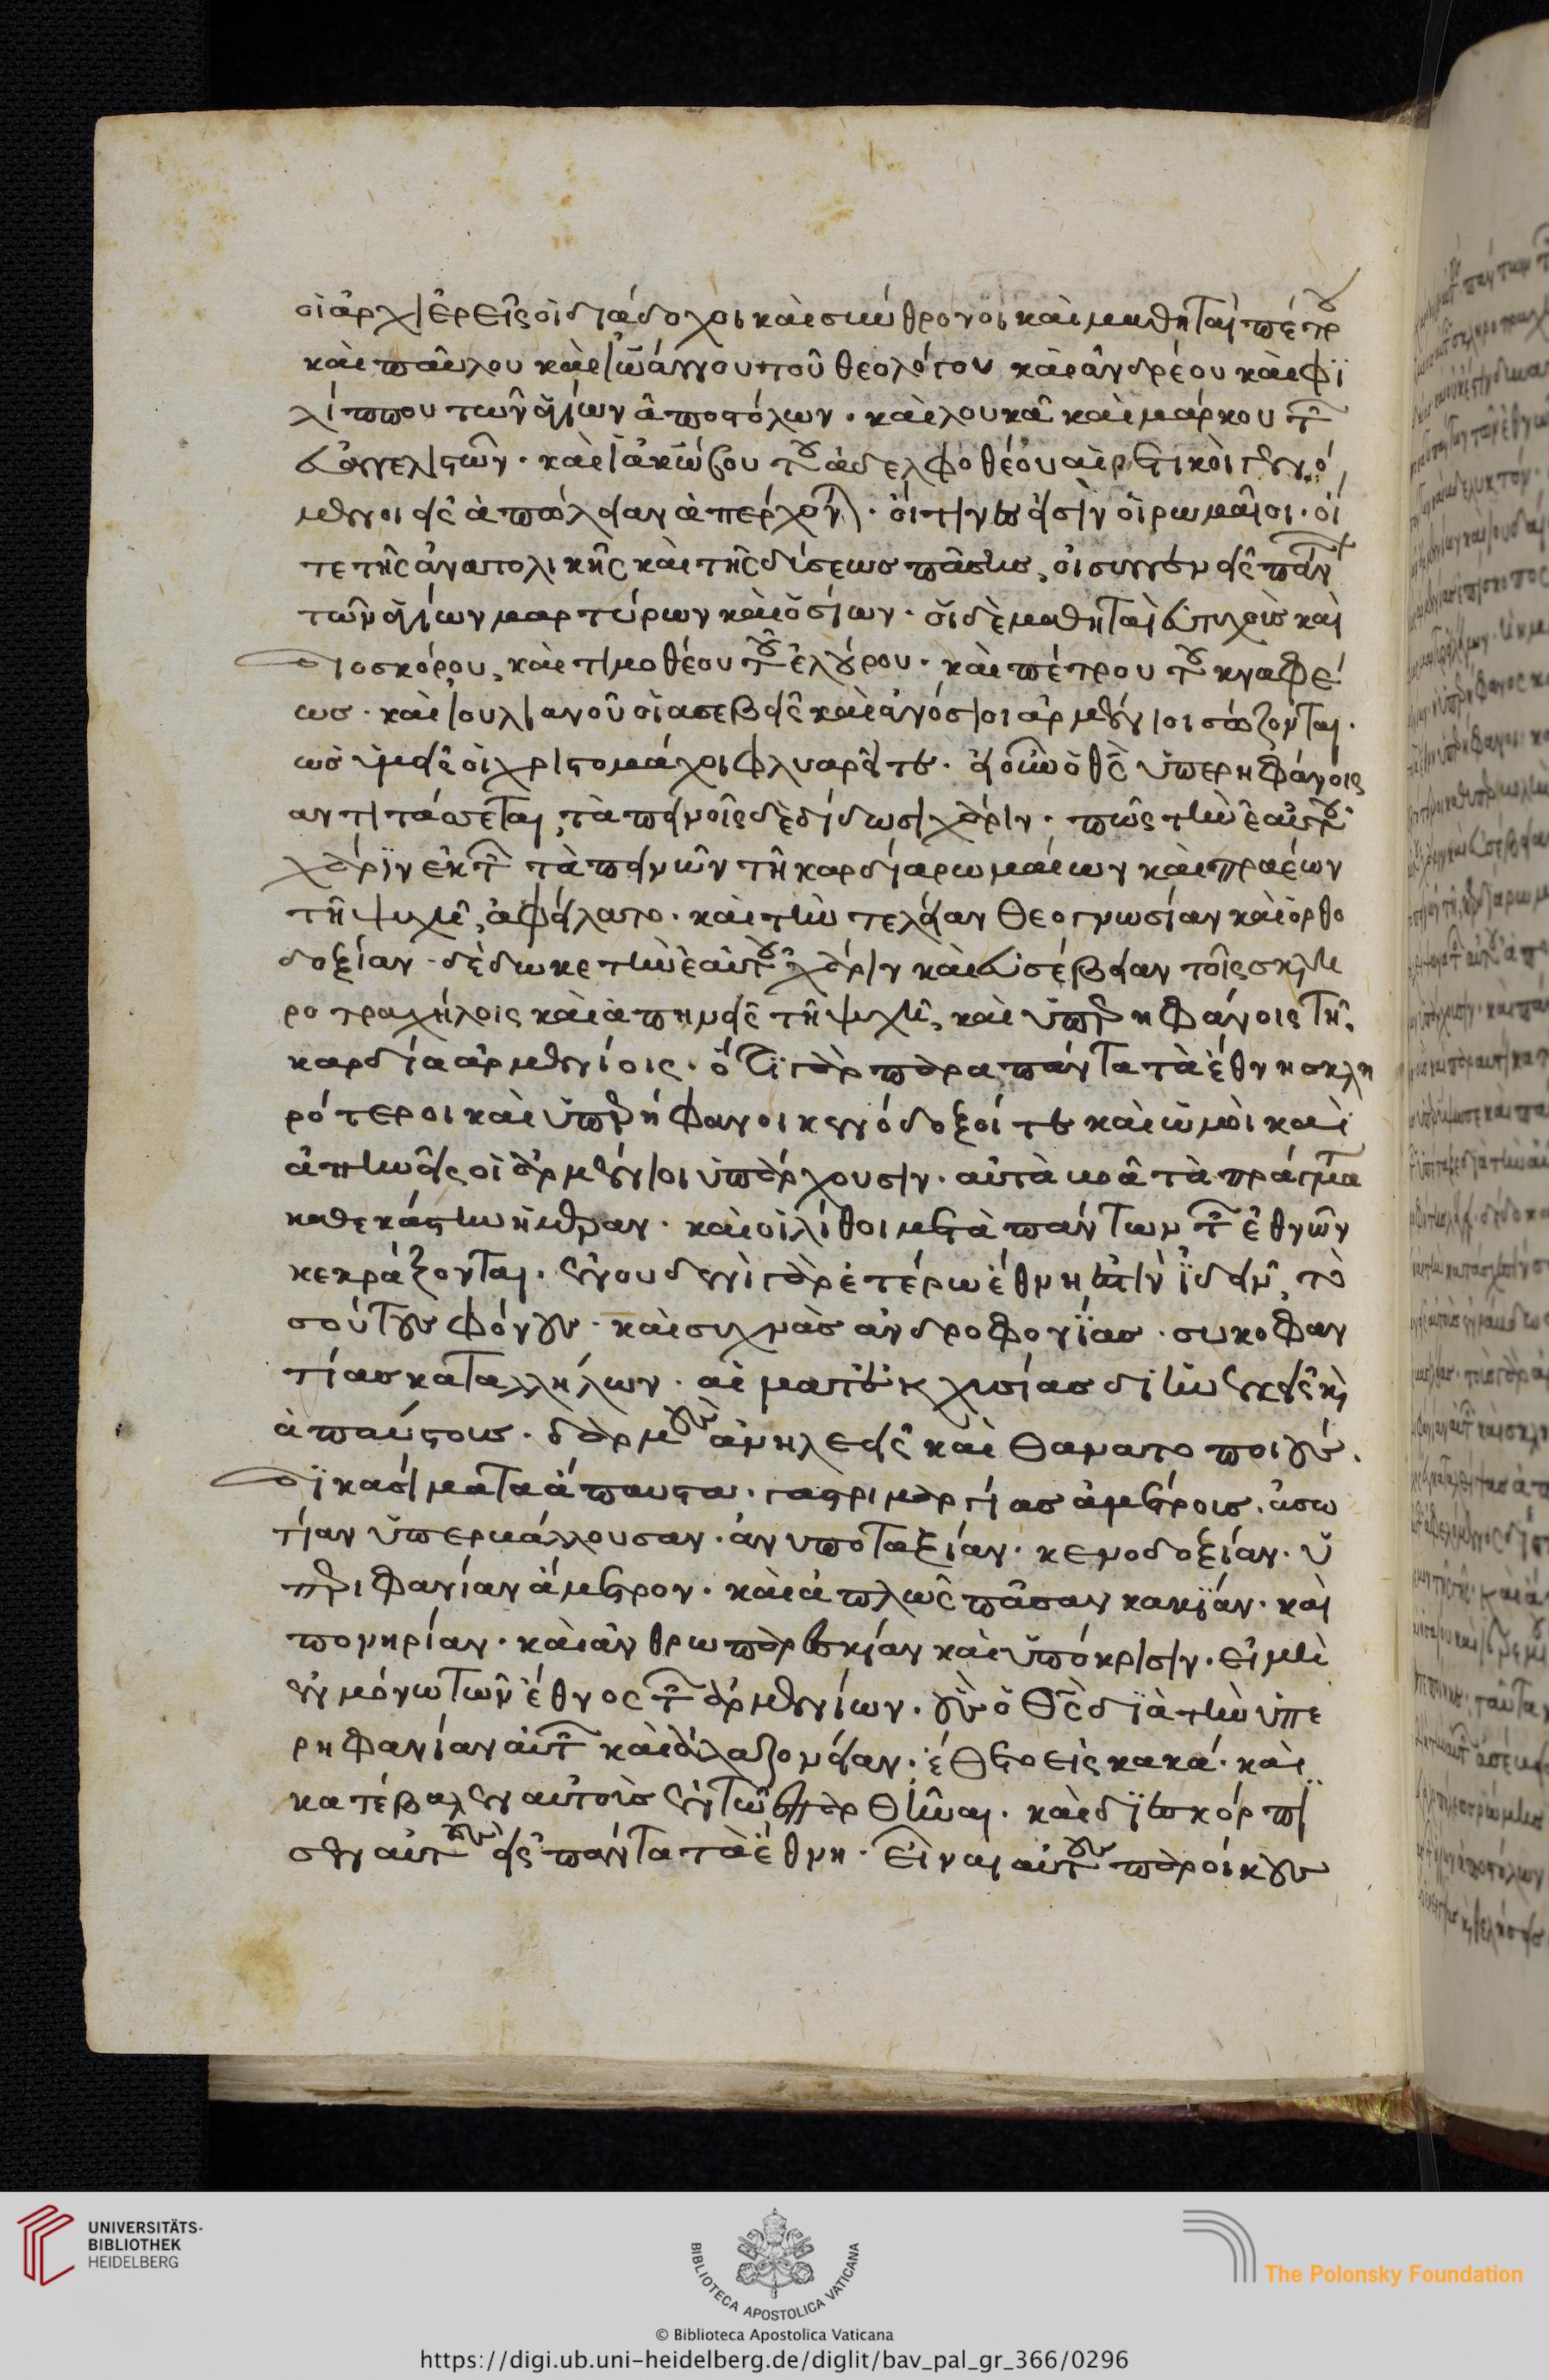 οἱ ἀρχιερεῖς οἱ διάδοχοι καὶ σύνθρονοι καὶ μαθηταὶ πέτρου
καὶ παύλου καὶ ἰωάννου τοῦ θεολόγου καὶ ἀνδρέου καὶ φι
λίππου τῶν ἁγίων ἀποστόλων · καὶ λουκᾶ καὶ μάρκου τῶν
εὐαγγελιστῶν · καὶ ἰακώβου τοῦ ἀδελφοθέου αἱρετικοὶ γενό
μενοι εἰς ἀπώλειαν ἀπέρχονται · οἵτινές εἰσιν οἱ ρωμαῖοι · οἵ
τε τῆς ἀνατολικῆς καὶ τῆς δύσεως πάσης, οἱ συγγενεῖς πάντων
τῶν ἁγίων μαρτύρων καὶ ὁσίων · οἱ δὲ μαθηταὶ εὐτυχοῦς καὶ
διοσκόρου, καὶ τιμοθέου τοῦ ἐλούρου · καὶ πέτρου τοῦ κναφέ
ως · καὶ ἰουλιανοῦ οἱ ἀσεβεῖς καὶ ἀνόσιοι ἀρμένιοι σώζονται ·
ὡς ὑμεῖς οἱ χριστομάχοι φλυαρεῖτε · εἰ οὖν ὁ θεὸς ὑπερηφάνοις
αντιτάσσεται, ταπεινοῖς δὲ δίδωσι χάριν · πῶς τὴν ἑαυτοῦ
χάριν ἐκ τῶν ταπεινῶν τῆ καρδία ρωμαίων καὶ πραέων
τῆ ψυχῆ, ἀφείλατο · καὶ τὴν τελείαν θεογνωσίαν καὶ ὀρθο
δοξίαν · δέδωκε τὴν ἑαυτοῦ χάριν καὶ εὐσέβειαν τοῖς σκλη
ροτραχήλοις καὶ ἀπηνεῖς τῆ ψυχῆ, καὶ ὑπερηφάνοις τῆ
καρδία ἀρμενίοις · ὅτι γὰρ παρὰ πάντα τὰ ἔθνη σκλη
ρότεροι καὶ ὑπερήφανοι κενόδοξοί τε καὶ ὠμοὶ καὶ
ἀπηνεῖς οἱ ἀρμένιοι ὑπάρχουσιν · αὐτὰ βοᾶ τὰ πράγματα
καθεκάστην ἡμέραν · καὶ οἱ λίθοι μετὰ πάντων τῶν ἐθνῶν
κεκράξονται · ἐν ουδενὶ γὰρ ἑτέρω ἔθνη ἐστὶν ἰδεῖν, το
σούτους φόνους · καὶ συχνὰς ἀνδροφονίας · συκοφαν
τίας καταλλήλων · αἱματεκχυσίας διηνεκεῖς καὶ
ἀπαύστους · δαρμοὺς ἀνηλεεῖς καὶ θανατοποιούς ·
δικασίματα ἄπαυστα · γαστριμαργίας ἀμέτροις · ἀσω
τίαν ὑπερβάλλουσαν · ἀνυποταξίαν · κενοδοξίαν · ὑ
περιφανίαν ἄμετρον · καὶ ἁπλῶς πᾶσαν κακίαν · καὶ
πονηρίαν · καὶ ἀνθρωπαρεσκίαν καὶ ὑπόκρισιν · εἰ μὴ
ἐν μόνω τῶν ἔθνος τῶν ἀρμενίων · οὓς ὁ θεὸς διὰ τὴν ὑπε
ρηφανίαν αὐτῶν καὶ ἀλαζονείαν · ἔθετο εἰς κακά · καὶ
κατέβαλεν αὐτοὺς ἐν τῶ ἐπαρθῆναι · καὶ διεσκόρπι
σεν αὐτοὺς εἰς πάντα τὰ ἔθνη · εἶναι αὐτοὺς παροίκους
UNIVERSITÄTS-
BIBLIOTHEK
HEIDELBERG
BIBLIOTECA APOSTOLICA VATICANA
The Polonsky Foundation
© Biblioteca Apostolica Vaticana
https://digi.ub.uni-heidelberg.de/diglit/bav_pal_gr_366/0296